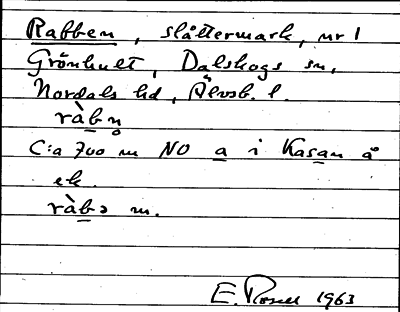 Rabben, slåttermark, nr 1
Grönhult, Dalskogs sn,
Nordals hd, Älvsb. l.
ràbn̥
C:a 700 m NO a i Kasan å
ek.
ràbə m.
E. 1963